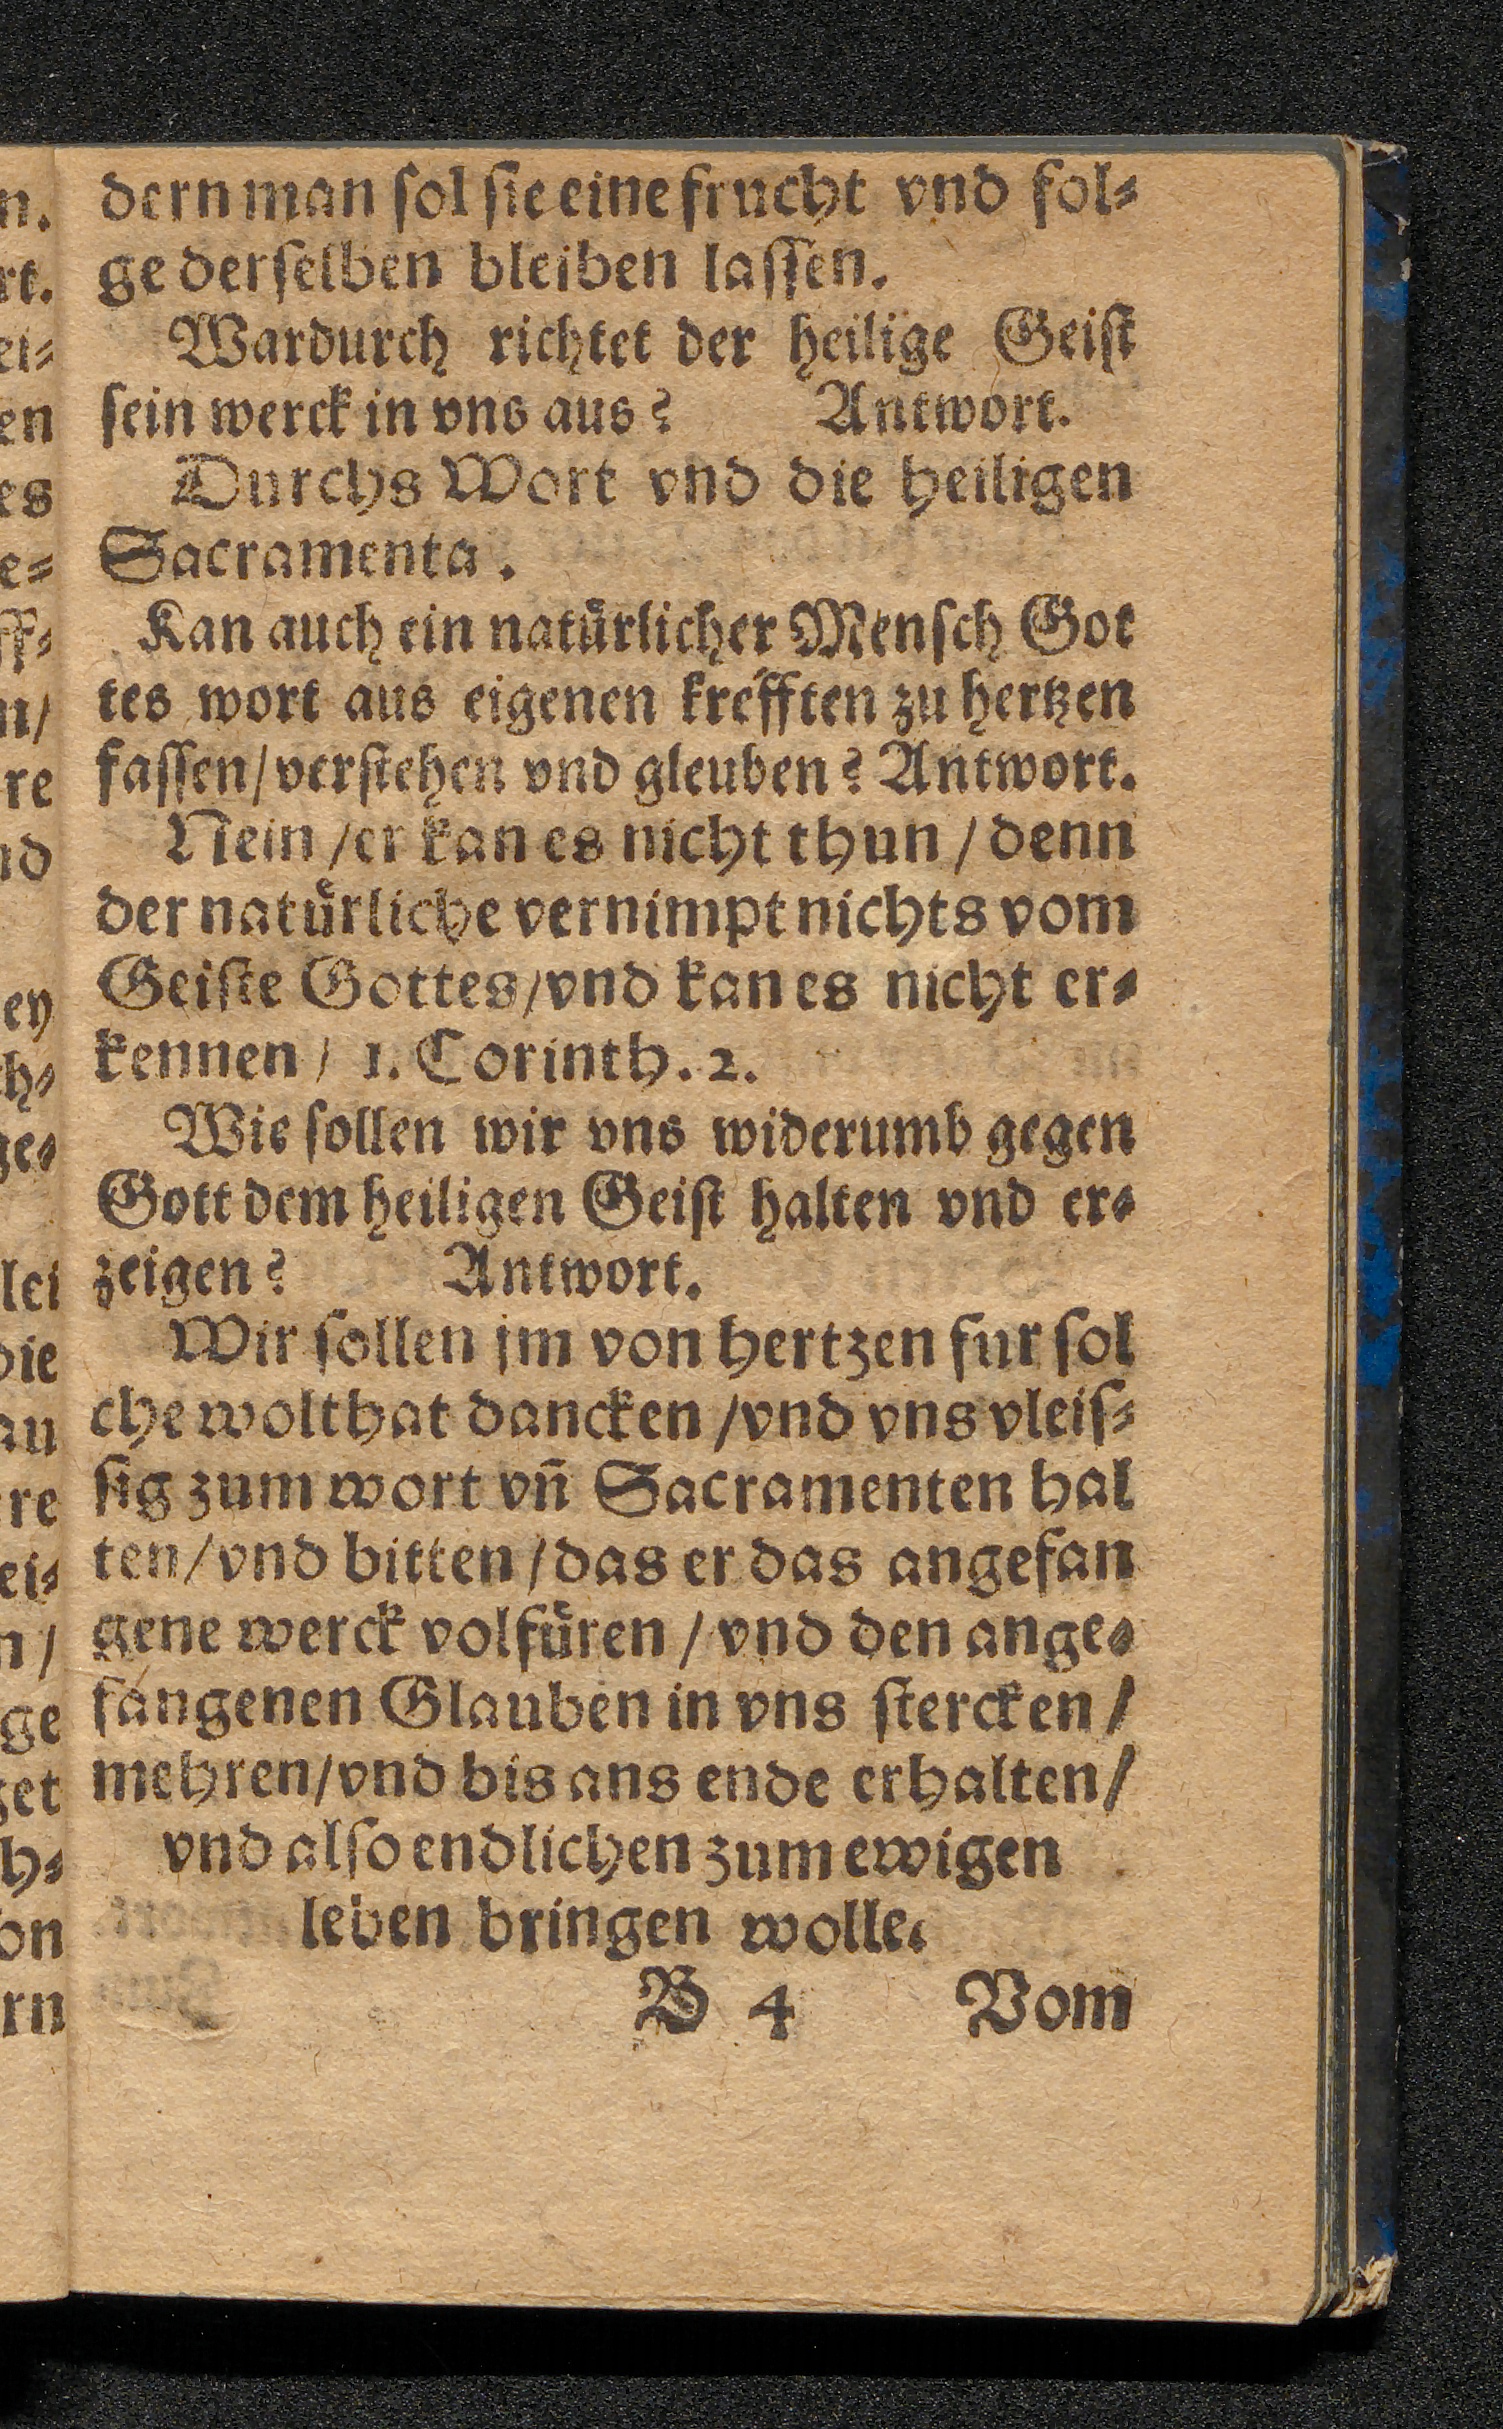 dern man ſol ſie eine frucht vnd fol⸗
ge derſelben bleiben laſſen.
Wardurch richtet der heilige Geiſt
ſein werck in vns aus? Antwort.
Durchs Wort vnd die heiligen
Sacramenta.
Kan auch ein natuͤrlicher Menſch Got
tes wort aus eigenen krefften zu hertzen
faſſen/verſtehen vnd gleuben? Antwort.
Nein/er kan es nicht thun/denn
der natuͤrliche vernimpt nichts vom
Geiſte Gottes/vnd kan es nicht er⸗
kennen/ 1. Corinth. 2.
Wie ſollen wir vns widerumb gegen
Gott dem heiligen Geiſt halten vnd er⸗
zeigen? Antwort.
Wir ſollen jm von hertzen fur ſol
che wolthat dancken/vnd vns vleiſ⸗
ſig zum wort vn̄ Sacramenten hal
ten/vnd bitten/das er das angefan
gene werck volfuͤren/vnd den ange⸗
fangenen Glauben in vns ſtercken/
mehren/vnd bis ans ende erhalten/
vnd alſo endlichen zum ewigen
leben bringen wolle.
B 4 Vom